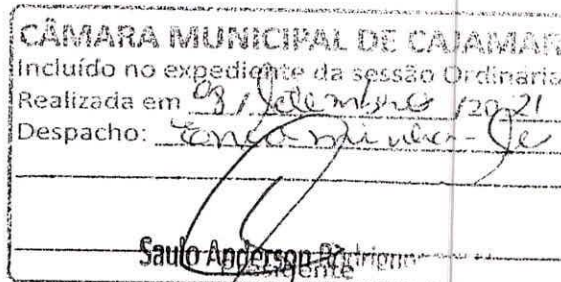 CÂMARA MUNICIPAL DE CAJAMAR
Incluído no expediente da sessão Ordinária
Realizada em 08 / setembro / 2021
Despacho: Encaminha-se
Saulo Anderson Rodrigues
Presidente